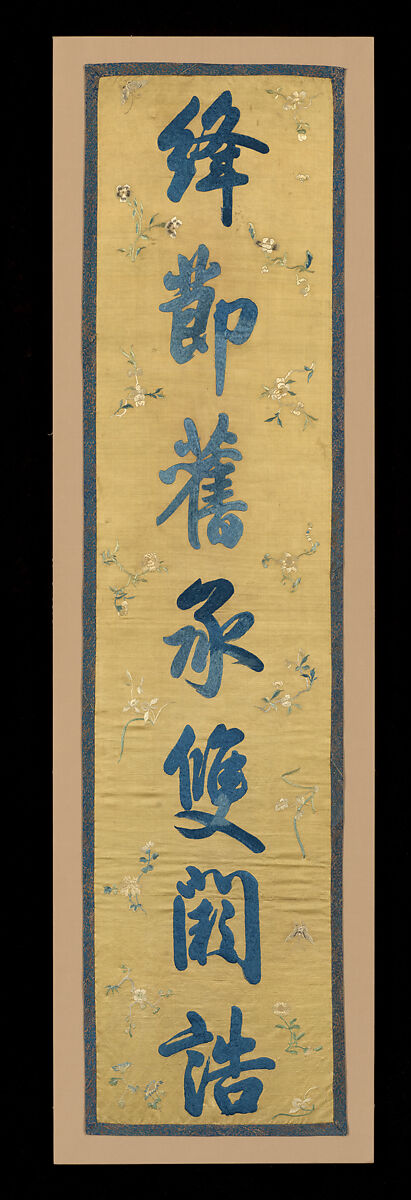 絳節舊承雙闕誥